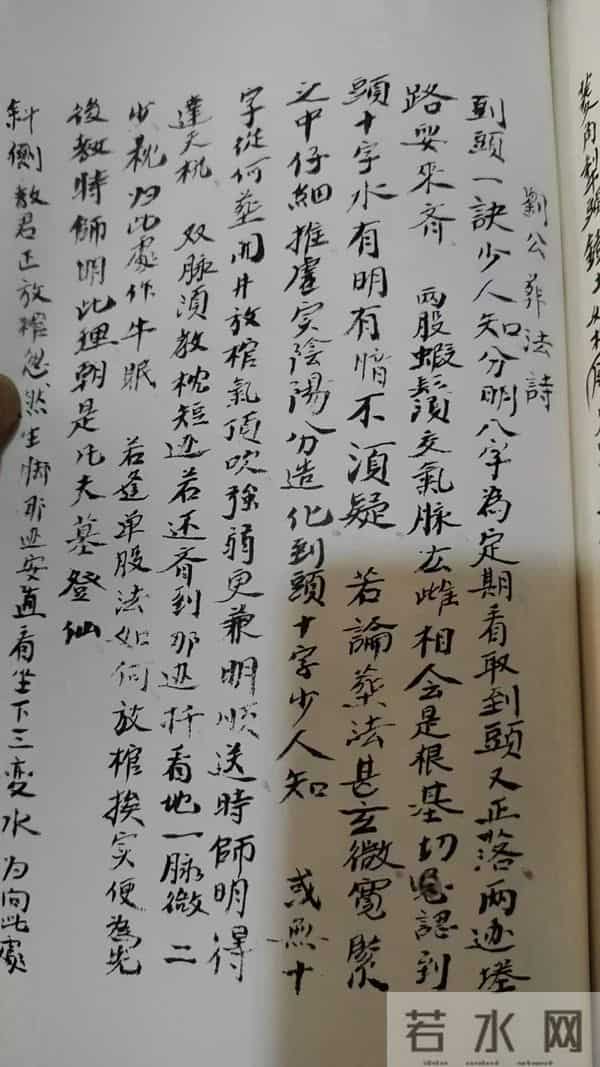 劉公葬法詩
到頭一訣少人知分明八字為定期看取到頭又正落兩边堂
路妥來齊 两股蝦鬚交氣脉厷雌相会是根基切忌認到
頭十字水有明有暗不湏疑 若論葬法甚玄微寬緊
之中仔細推虛实陰陽分造化到頭十字少人知 或照十
字從何葬開井放棺氣頂吹強弱更兼明順送時師明得
達天机 双脉湏教枕短边若还齊到那边扦看地一脉微二
少親归此處作牛眠 若逢单股法如何放棺挨实便為先
後教時師明此理朝是凡夫墓登仙
斜側教君正放棺忽然生脚那边安直看坐下三变水為向此處
若水网